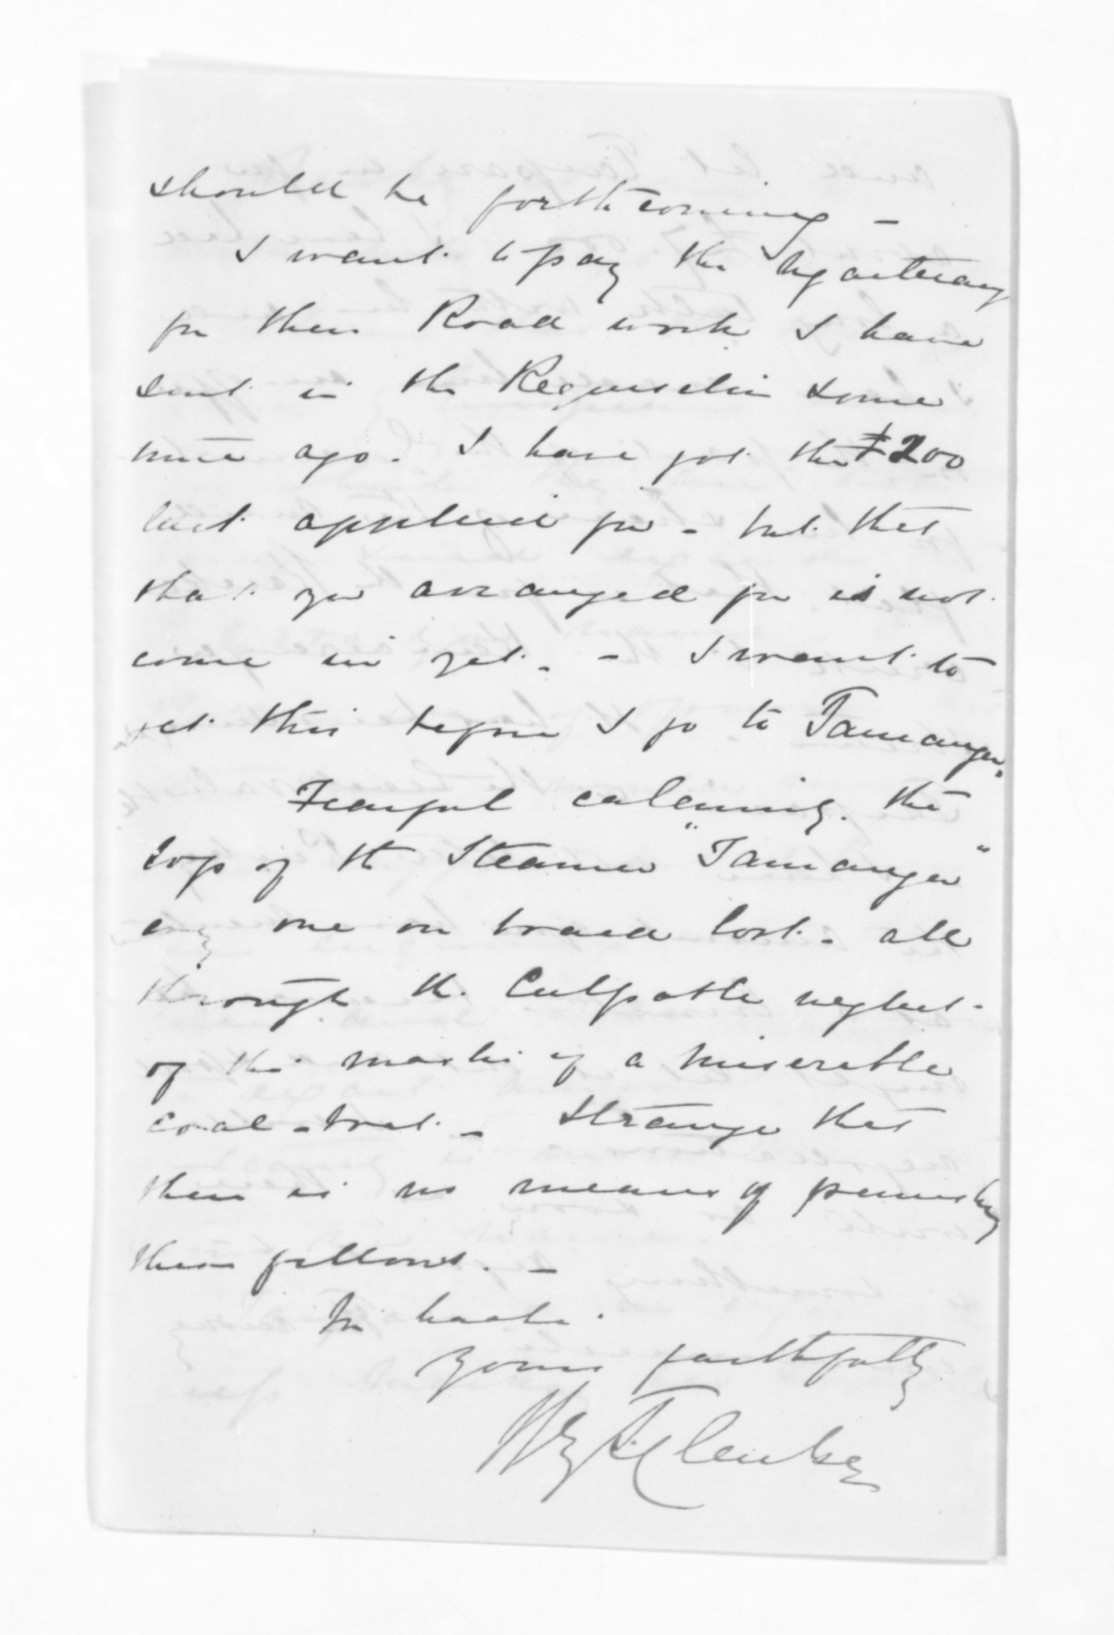 should be forthcoming -
I want to pay the Ngaiterangi
for their Road work I have
sent in the Requisition some
time ago. I have got the £200
last applied for - but that
that you arranged for is not
come in yet. - I want to
get this before I go to Tauranga.
Fearful calamity. the
loss of the Steamer "Taurangar"
evy one on board lost. all
through the Culpable neglect
of the master of a miserable
coal-boat. - Strange that
there is no means of punishing
these fellows. -
In haste.
Yours faithfully
H. T. Clarke